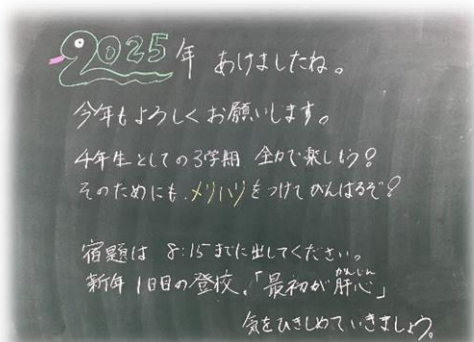 2025年 あけましたね。
今年もよろしくお願いします。
4年生としての3学期 全力で楽しもう?
そのためにも、メリハリをつけてがんばるぞ?
宿題は 8:15までに出してください。
新年1日目の登校、「最初が肝心(かんじん)」
気をひきしめていきましょう。